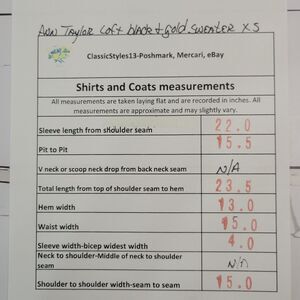 Ann Taylor Loft black & gold sweater XS
ClassicStyles13-Poshmark, Mercari, eBay
Shirts and Coats measurements
All measurements are taken laying flat and are recorded in inches. All
measurements are approximate and may slightly vary.
Sleeve length from shoulder seam 22.0
Pit to Pit 15.5
V neck or scoop neck drop from back neck seam N/A
Total length from top of shoulder seam to hem 23.5
Hem width 13.0
Waist width 15.0
Sleeve width-bicep widest width 4.0
Neck to shoulder-Middle of neck to shoulder
seam N/A
Shoulder to shoulder width-seam to seam 15.0